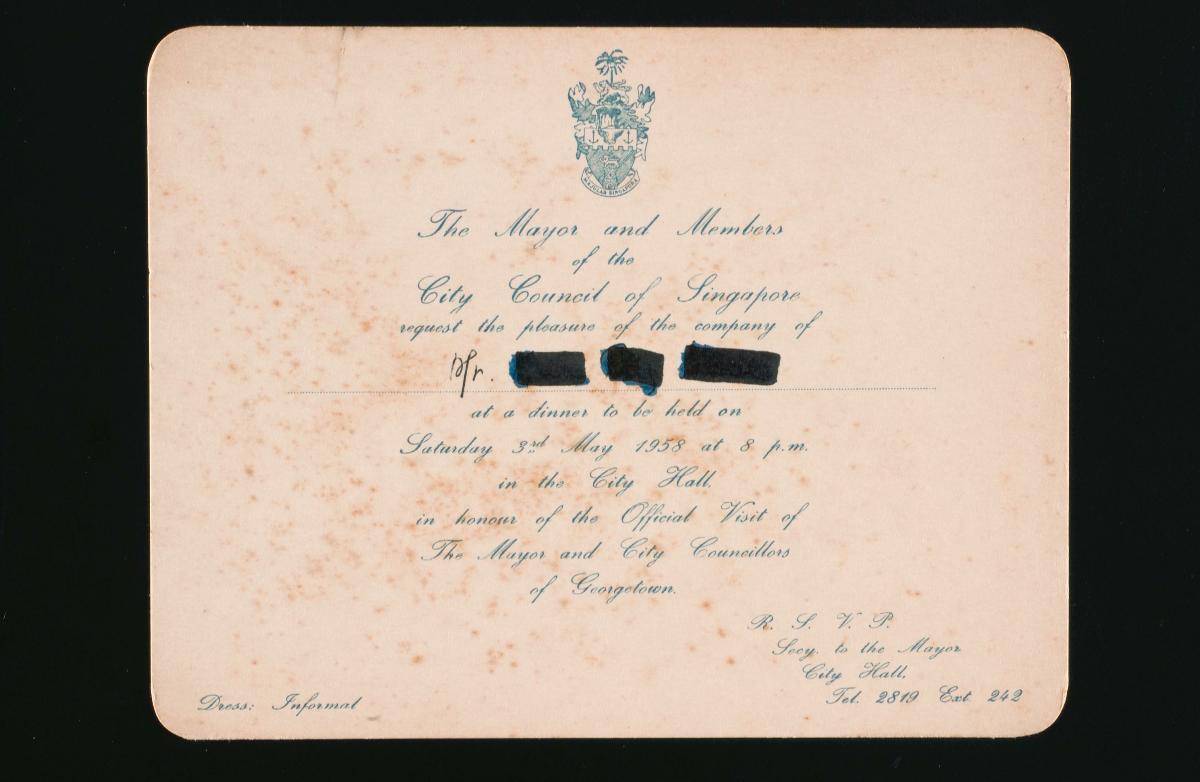 MAJULAH SINGAPURA
The Mayor and Members
of the
City Council of Singapore
request the pleasure of the company of
Mr.
at a dinner to be held on
Saturday 3rd May 1958 at 8 p.m.
in the City Hall.
in honour of the Official Visit of
The Mayor and City Councillors
of Georgetown.
R. S. V. P.
Secy. to the Mayor
City Hall,
Tel. 2819 Ext 242
Dress: Informal